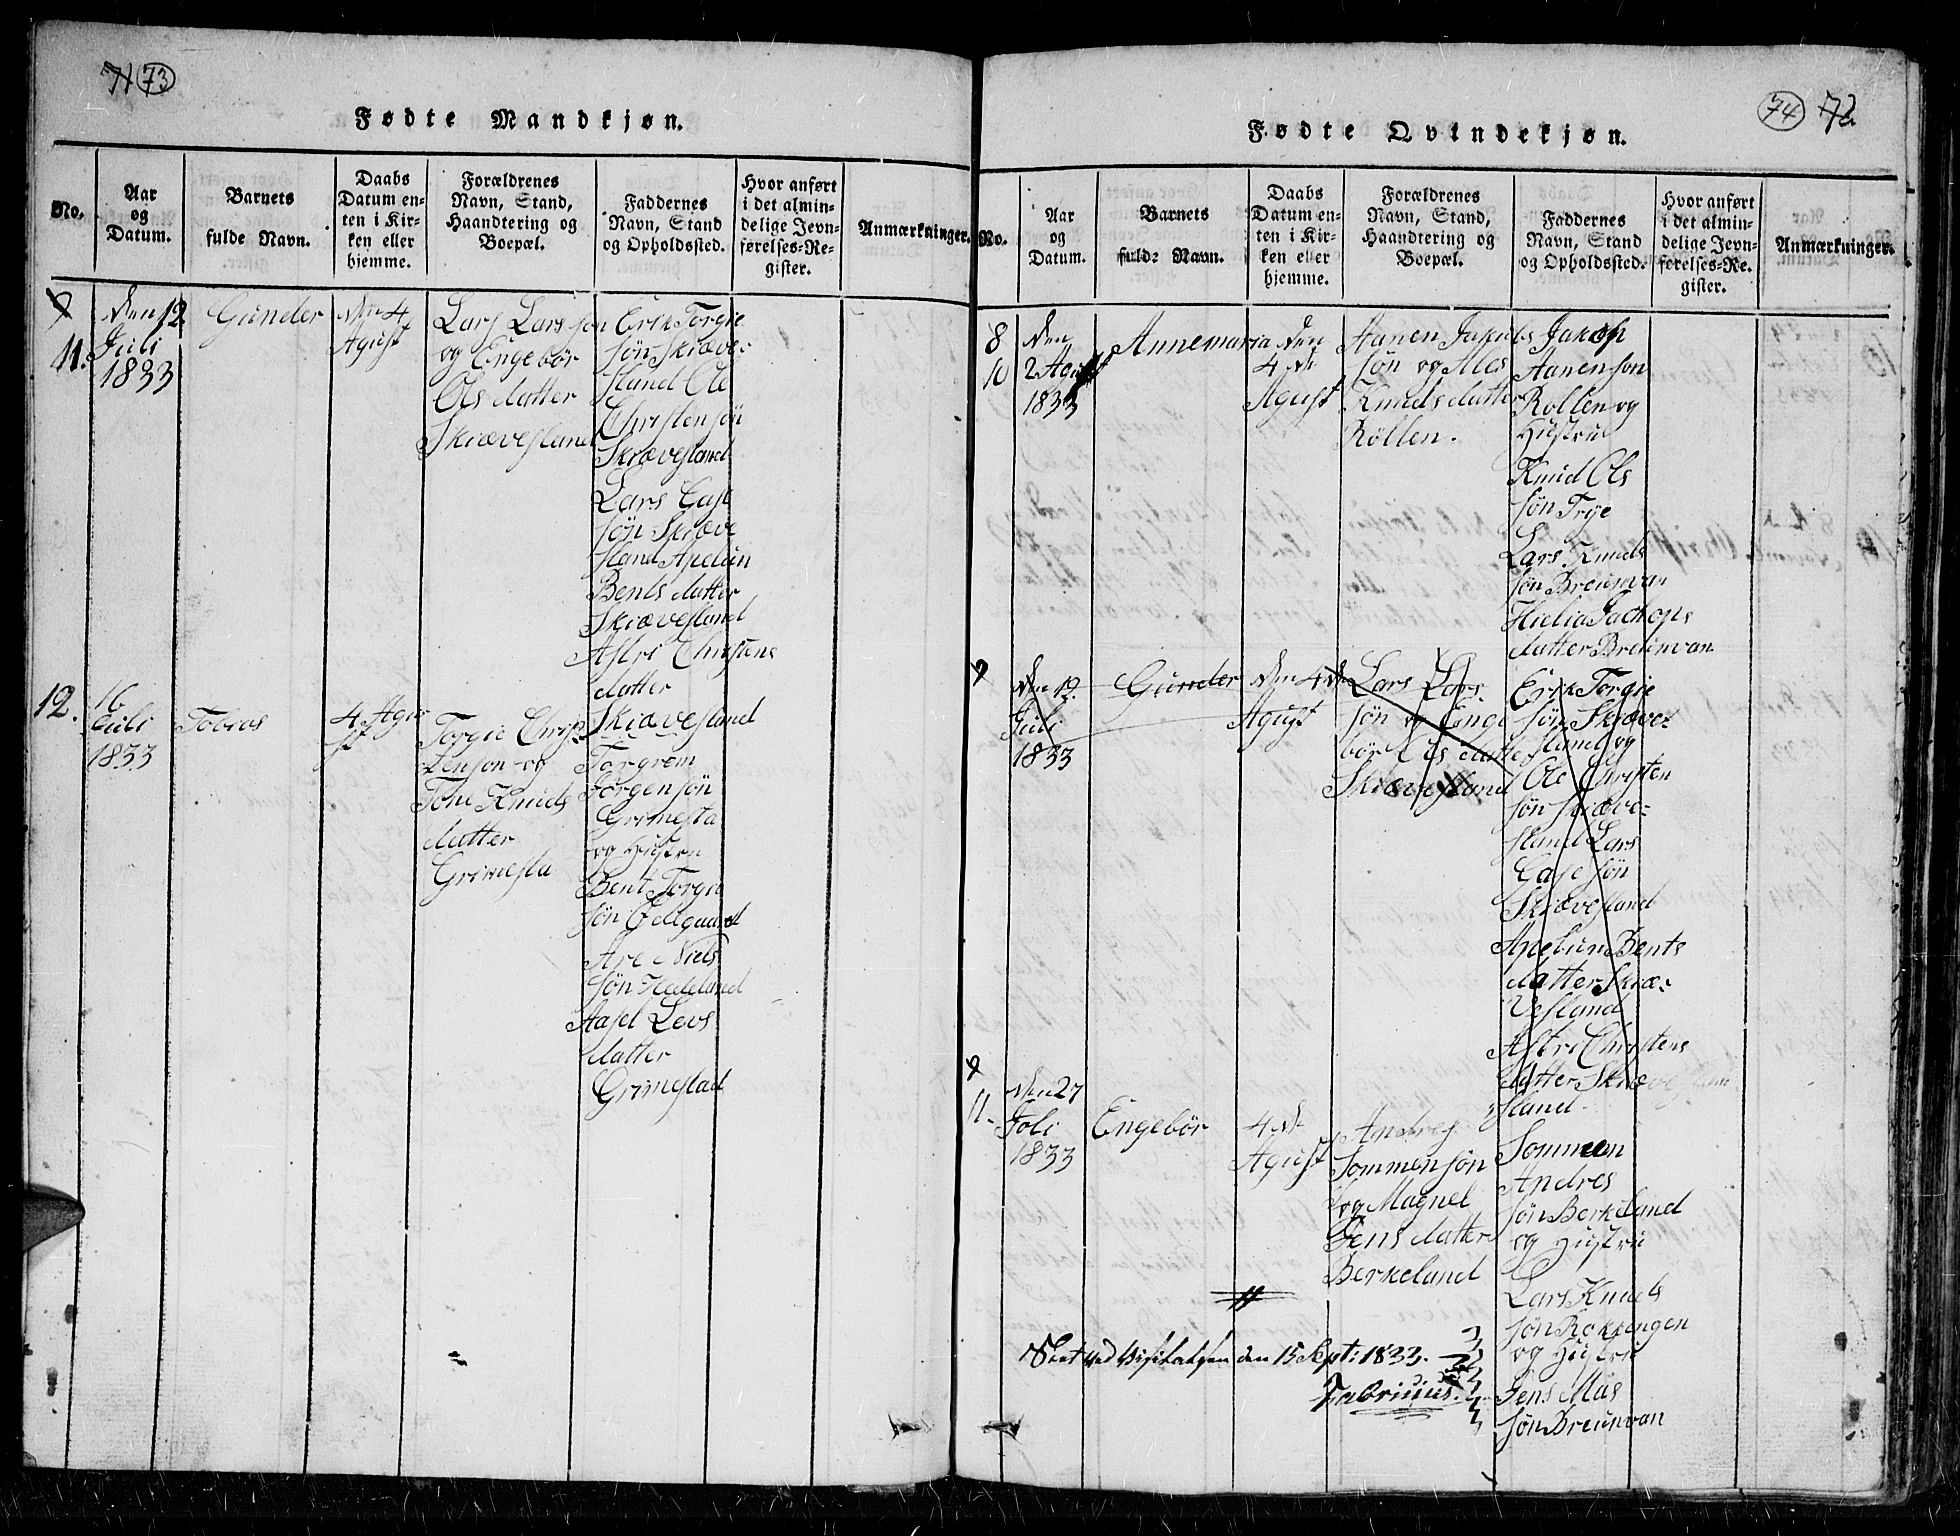 71 73
Fødte Mandkjøn.
No.
Aar
og
Datum.
Barnets
fulde Navn.
Daabs
Datum en-
ten i Kir-
ken eller
hjemme.
Forældrenes
Navn, Stand,
Haandtering og
Boepæl.
Faddernes
Navn, Stand
og Opholdssted.
Hvor anført
i det almin-
delige Jevn-
førelses-Re-
gister.
Anmærkninger.
11.
den 12
Juli
1833
Gunder
den 4
Agust
Lars Larssøn
og Engebør
Ols datter
Skiævesland
Erik Torgie
søn Skiæve-
sland Ole
Christensøn
Skiævesland
Lars Case
søn Skiæve
sland Apelun
Bents datter
Skiævesland
Astri Christens
datter
Skiævesland
12.
16
Juli
1833
Tobias
4 Agu
st
Torgie Chris-
tenson og
Tone Knuds
datter
Grimesta
Torgrem
Jørgensøn
Grimesta
og Hustru
Bent Torgie
søn Ødegaard
Are Niels
søn Hadeland
Aasel Levs
datter
Grimestad
74 72
Fødte Qvindekjøn.
No.
Aar
og
Datum.
Barnets
fulde Navn.
Daabs
Datum en-
ten i Kir-
ken eller
hjemme.
Forældrenes
Navn, Stand,
Haandtering og
Boepæl.
Faddernes
Navn, Stand
og Opholdssted.
Hvor anført
i det almin-
delige Jevn-
førelses-Re-
gister.
Anmærkninger.
8
10
den
2 Agust
1833
Annemaria
den
4 de
Agust
Aanen Jakobs
søn og Ales
Knuds datter
Røllen.
Jakop
Aanenson
Rollen og
Hustru
Knud Ols
søn Trye
Lars Knuds
søn Breunvan
Hielia Jachops
datter Breunvan
9
den 12
Juli
1833
Gunder
den 4 de
Agust
Lars Lars
søn og Enge
bør Ols datter
Skiævesland
Erik Torgie
søn Skiæve-
sland og
Ole Christen
søn Skiæve-
sland Lars
Case søn
Skiævesland
Apelun Bents
datter Skiæ-
vesland
Astri Christens
datter Skiæve
sland
11.
den 27
Joli
1833
Engebør
4 de
Agust
Andres
Sommensøn
og Magnel
Jens datter
Berkeland
Sommen
Andres
søn Berkeland
og Hustru
Lars Knuds
søn Roksengen
og Hustru
Jens Mas
søn Breunvan
Seet ved Visitatsen den 15 Sept: 1833.
Fabricius.